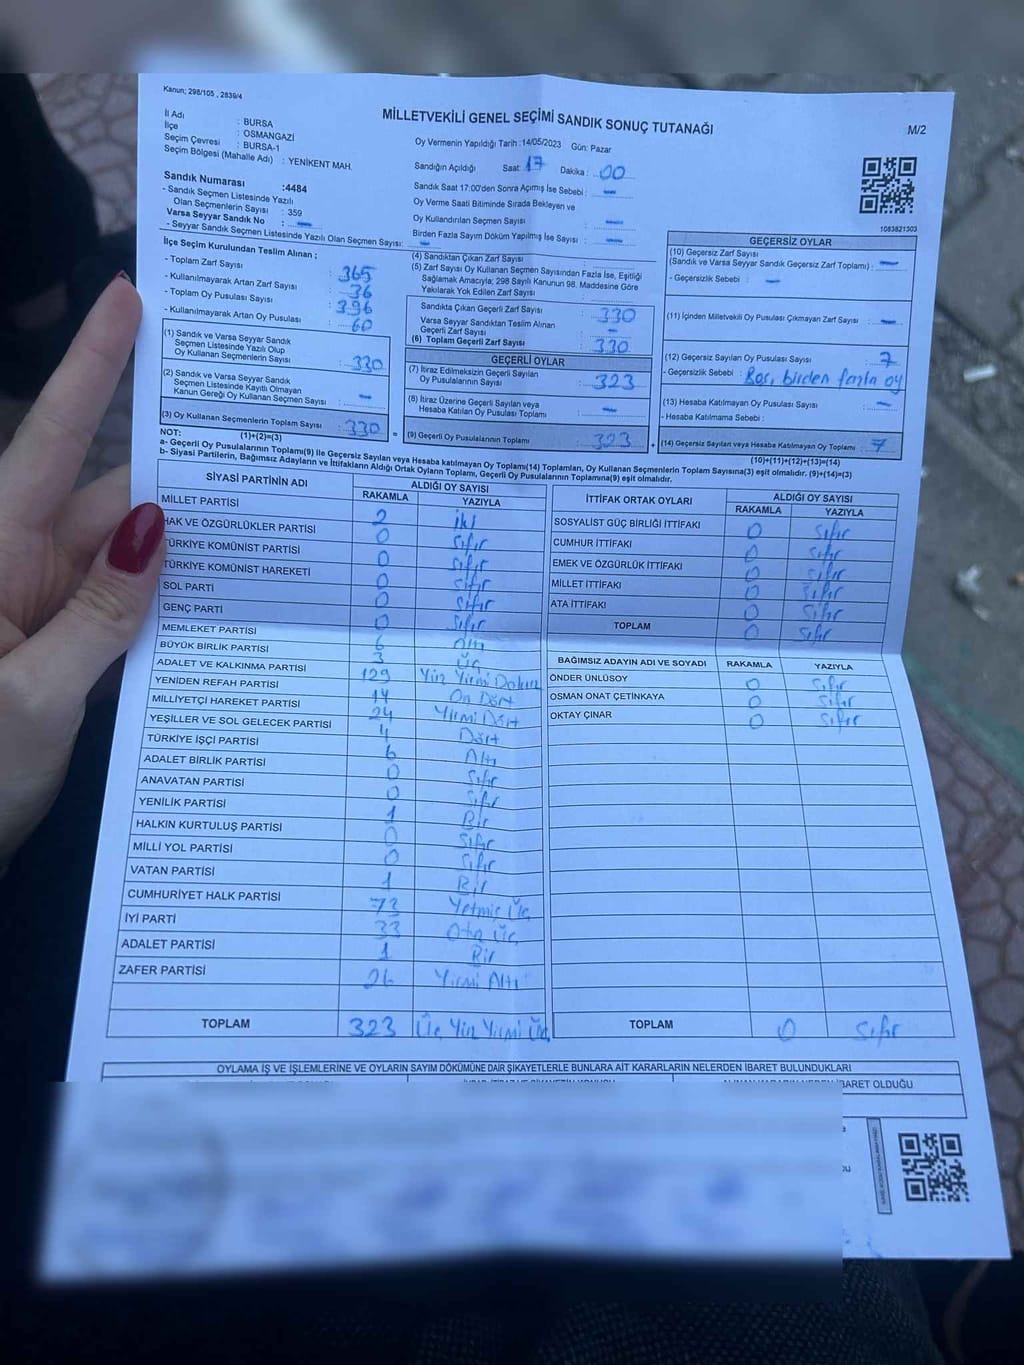 Kanun; 298/105 , 2839/4
MİLLETVEKİLİ GENEL SEÇİMİ SANDIK SONUÇ TUTANAĞI
M/2
İl Adı : BURSA
İlçe : OSMANGAZİ
Seçim Çevresi : BURSA-1
Seçim Bölgesi (Mahalle Adı) : YENİKENT MAH.
Oy Vermenin Yapıldığı Tarih :14/05/2023 Gün: Pazar
Sandığın Açıldığı Saat : 17 Dakika : 00
Sandık Saat 17:00'den Sonra Açımış İse Sebebi : —
Oy Verme Saati Bitiminde Sırada Bekleyen ve
Oy Kullandırılan Seçmen Sayısı : —
Birden Fazla Sayım Döküm Yapılmış İse Sayısı : —
1083821303
Sandık Numarası :4484
- Sandık Seçmen Listesinde Yazılı
Olan Seçmenlerin Sayısı : 359
Varsa Seyyar Sandık No : —
- Seyyar Sandık Seçmen Listesinde Yazılı Olan Seçmen Sayısı: —
İlçe Seçim Kurulundan Teslim Alınan ;
- Toplam Zarf Sayısı : 365
- Kullanılmayarak Artan Zarf Sayısı : 36
- Toplam Oy Pusulası Sayısı : 396
- Kullanılmayarak Artan Oy Pusulası : 60
(1) Sandık ve Varsa Seyyar Sandık
Seçmen Listesinde Yazılı Olup
Oy Kullanan Seçmenlerin Sayısı : 330
(2) Sandık ve Varsa Seyyar Sandık
Seçmen Listesinde Kayıtlı Olmayan
Kanun Gereği Oy Kullanan Seçmen Sayısı : —
(3) Oy Kullanan Seçmenlerin Toplam Sayısı : 330
(1)+(2)=(3)
(4) Sandıktan Çıkan Zarf Sayısı
(5) Zarf Sayısı Oy Kullanan Seçmen Sayısından Fazla İse, Eşitliği
Sağlamak Amacıyla; 298 Sayılı Kanunun 98. Maddesine Göre
Yakılarak Yok Edilen Zarf Sayısı
Sandıkta Çıkan Geçerli Zarf Sayısı : 330
Varsa Seyyar Sandıktan Teslim Alınan
Geçerli Zarf Sayısı : —
(6) Toplam Geçerli Zarf Sayısı : 330
GEÇERLİ OYLAR
(7) İtiraz Edilmeksizin Geçerli Sayılan
Oy Pusulalarının Sayısı : 323
(8) İtiraz Üzerine Geçerli Sayılan veya
Hesaba Katılan Oy Pusulası Toplamı : —
(9) Geçerli Oy Pusulalarının Toplamı 323
GEÇERSİZ OYLAR
(10) Geçersiz Zarf Sayısı
(Sandık ve Varsa Seyyar Sandık Geçersiz Zarf Toplamı) : —
- Geçersizlik Sebebi : —
(11) İçinden Milletvekili Oy Pusulası Çıkmayan Zarf Sayısı : —
(12) Geçersiz Sayılan Oy Pusulası Sayısı : 7
- Geçersizlik Sebebi : Boş, birden fazla oy
(13) Hesaba Katılmayan Oy Pusulası Sayısı : —
- Hesaba Katılmama Sebebi :
(14) Geçersiz Sayılan veya Hesaba Katılmayan Oy Toplamı : 7
(10)+(11)+(12)+(13)=(14)
NOT:
a- Geçerli Oy Pusulalarının Toplamı(9) ile Geçersiz Sayılan veya Hesaba Katılmayan Oy Toplamı(14) Toplamları, Oy Kullanan Seçmenlerin Toplam Sayısına(3) eşit olmalıdır. (9)+(14)=(3)
b- Siyasi Partilerin, Bağımsız Adayların ve İttifakların Aldığı Ortak Oyların Toplamı, Geçerli Oy Pusulalarının Toplamına(9) eşit olmalıdır.
SİYASİ PARTİNİN ADI ALDIĞI OY SAYISI
RAKAMLA YAZIYLA
MİLLET PARTİSİ 2 İki
HAK VE ÖZGÜRLÜKLER PARTİSİ 0 Sıfır
TÜRKİYE KOMÜNİST PARTİSİ 0 Sıfır
TÜRKİYE KOMÜNİST HAREKETİ 0 Sıfır
SOL PARTİ 0 Sıfır
GENÇ PARTİ 0 Sıfır
MEMLEKET PARTİSİ 6 Altı
BÜYÜK BİRLİK PARTİSİ 3 Üç
ADALET VE KALKINMA PARTİSİ 129 Yüz Yirmi Dokuz
YENİDEN REFAH PARTİSİ 14 On Dört
MİLLİYETÇİ HAREKET PARTİSİ 24 Yirmi Dört
YEŞİLLER VE SOL GELECEK PARTİSİ 4 Dört
TÜRKİYE İŞÇİ PARTİSİ 6 Altı
ADALET BİRLİK PARTİSİ 0 Sıfır
ANAVATAN PARTİSİ 0 Sıfır
YENİLİK PARTİSİ 1 Bir
HALKIN KURTULUŞ PARTİSİ 0 Sıfır
MİLLİ YOL PARTİSİ 0 Sıfır
VATAN PARTİSİ 1 Bir
CUMHURİYET HALK PARTİSİ 73 Yetmiş Üç
İYİ PARTİ 33 Otuz Üç
ADALET PARTİSİ 1 Bir
ZAFER PARTİSİ 26 Yirmi Altı
TOPLAM 323 Üç Yüz Yirmi Üç
İTTİFAK ORTAK OYLARI ALDIĞI OY SAYISI
RAKAMLA YAZIYLA
SOSYALİST GÜÇ BİRLİĞİ İTTİFAKI 0 Sıfır
CUMHUR İTTİFAKI 0 Sıfır
EMEK VE ÖZGÜRLÜK İTTİFAKI 0 Sıfır
MİLLET İTTİFAKI 0 Sıfır
ATA İTTİFAKI 0 Sıfır
TOPLAM 0 Sıfır
BAĞIMSIZ ADAYIN ADI VE SOYADI RAKAMLA YAZIYLA
ÖNDER ÜNLÜSOY 0 Sıfır
OSMAN ONAT ÇETİNKAYA 0 Sıfır
OKTAY ÇINAR 0 Sıfır
TOPLAM 0 Sıfır
OYLAMA İŞ VE İŞLEMLERİNE VE OYLARIN SAYIM DÖKÜMÜNE DAİR ŞİKAYETLERLE BUNLARA AİT KARARLARIN NELERDEN İBARET BULUNDUKLARI
İBARET OLDUĞU